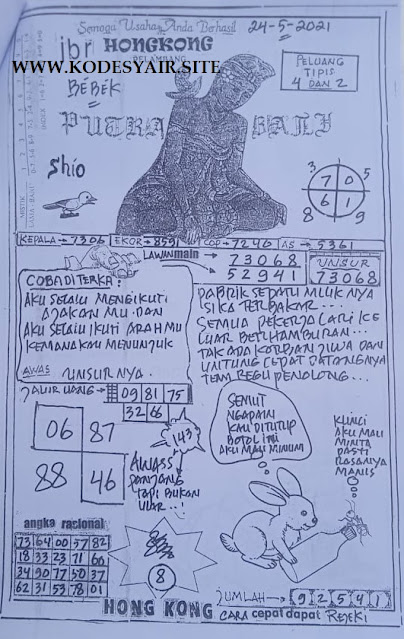 Semoga Usaha Anda Berhasil
24-5-2021
jbr HONGKONG
PELAMBANG
WWW.KODESYAIR.SITE
BEBEK
PELUANG
TIPIS
4 DAN 2
PUTRA BALI
Shio
3 5
7 0
6 1
8 9
KEPALA → 7306 EKOR → 8591 COP → 7240 AS → 5361
LAWAN main → 73068
52941
UNSUR
73068
COBA DITERKA:
AKU SELALU MENGIKUTI
AJAKAN MU DAN
AKU SELALU IKUTI ARAH MU
KEMANA KAU MENUNJUK
AWAS UNSUR NYA.
PABRIK SEPATU MILIK NYA
SIKA TERBAKAR...
SEMUA PEKERJA LARI KE
LUAR BERHAMBURAN...
TAK ADA KORBAN JIWA DAN
UNTUNG CEPAT DATANGNYA
TEM REGU PENOLONG...
JALUR UANG → 09 81 75
32 66
06 87
88 46
143
AWASS
PANJANG
TAPI BUKAN
ULAR...!
SEMUT
NGAPAIN
KAU DITUTUP
BOTOL INI
AKU MAU MINUM
KUNCI
AKU MAU
MINTA
PASTI
RASANYA
MANIS
angka rasional
73 64 00 57 82
18 33 23 71 66
34 90 77 50 37
62 31 53 78 01
8
JUMLAH → 9 2 5 4 1
HONG KONG CARA cepat dapat REJEKI